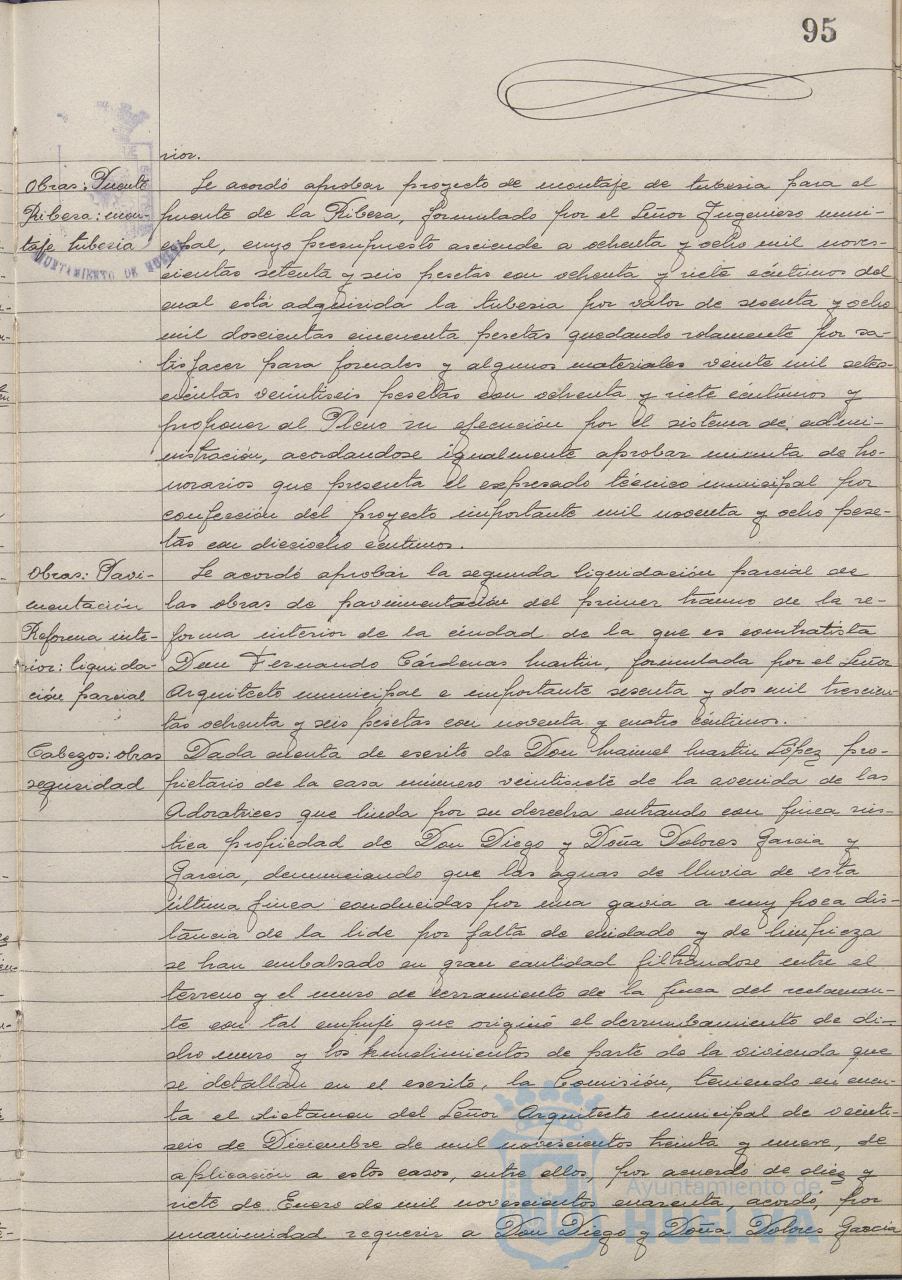 95
rior.
Obras; Puente
Ribera; mon-
taje tuberia
AYUNTAMIENTO DE HUELVA
Se acordó aprobar proyecto de montaje de tuberia para el
puente de la Ribera, formulado por el Señor Ingeniero muni-
cipal, cuyo presupuesto asciende a ochenta y ocho mil nove-
cientas setenta y seis pesetas con ochenta y siete céntimos del
cual está adquirida la tuberia por valor de sesenta y ocho
mil doscientas cincuenta pesetas quedando solamente por sa-
tisfacer para jornales y algunos materiales veinte mil sete-
cientas veintiseis pesetas con ochenta y siete céntimos y
proponer al Pleno su ejecución por el sistema de admi-
nistración, acordandose igualmente aprobar minuta de ho-
norarios que presenta el expresado técnico municipal por
confección del proyecto importante mil noventa y ocho pese-
tas con dieciocho céntimos.
Obras: Pavi-
mentación
Reforma inte-
rior: liquida-
ción parcial
Se acordó aprobar la segunda liquidación parcial de
las obras de pavimentación del primer tramo de la re-
forma interior de la ciudad de la que es contratista
Don Fernando Cárdenas Martin, formulada por el Señor
Arquitecto municipal e importante sesenta y dos mil trescien-
tas ochenta y seis pesetas con noventa y cuatro céntimos.
Cabezos: obras
seguridad
Dada cuenta de escrito de Don Manuel Martin López pro-
pietario de la casa número veintisiete de la avenida de las
Adoratrices que linda por su derecha entrando con finca rús-
tica propiedad de Don Diego y Doña Dolores Garcia y
Garcia, denunciando que las aguas de lluvia de esta
última finca conducidas por una gavia a muy poca dis-
tancia de la lide por falta de cuidado y de limpieza
se han embalsado en gran cantidad filtrandose entre el
terreno y el muro de cerramiento de la finca del reclaman-
te con tal empuje que originó el derrumbamiento de di-
cho muro y los hundimientos de parte de la vivienda que
se detallan en el escrito, la Comisión, teniendo en cuen-
ta el dictamen del Señor Arquitecto municipal de veinti-
seis de Diciembre de mil novecientos treinta y nueve, de
aplicación a estos casos, entre ellos, por acuerdo de diez y
siete de Enero de mil novecientos cuarenta, acordó, por
unanimidad requerir a Don Diego y Doña Dolores Garcia
Ayuntamiento de
HUELVA